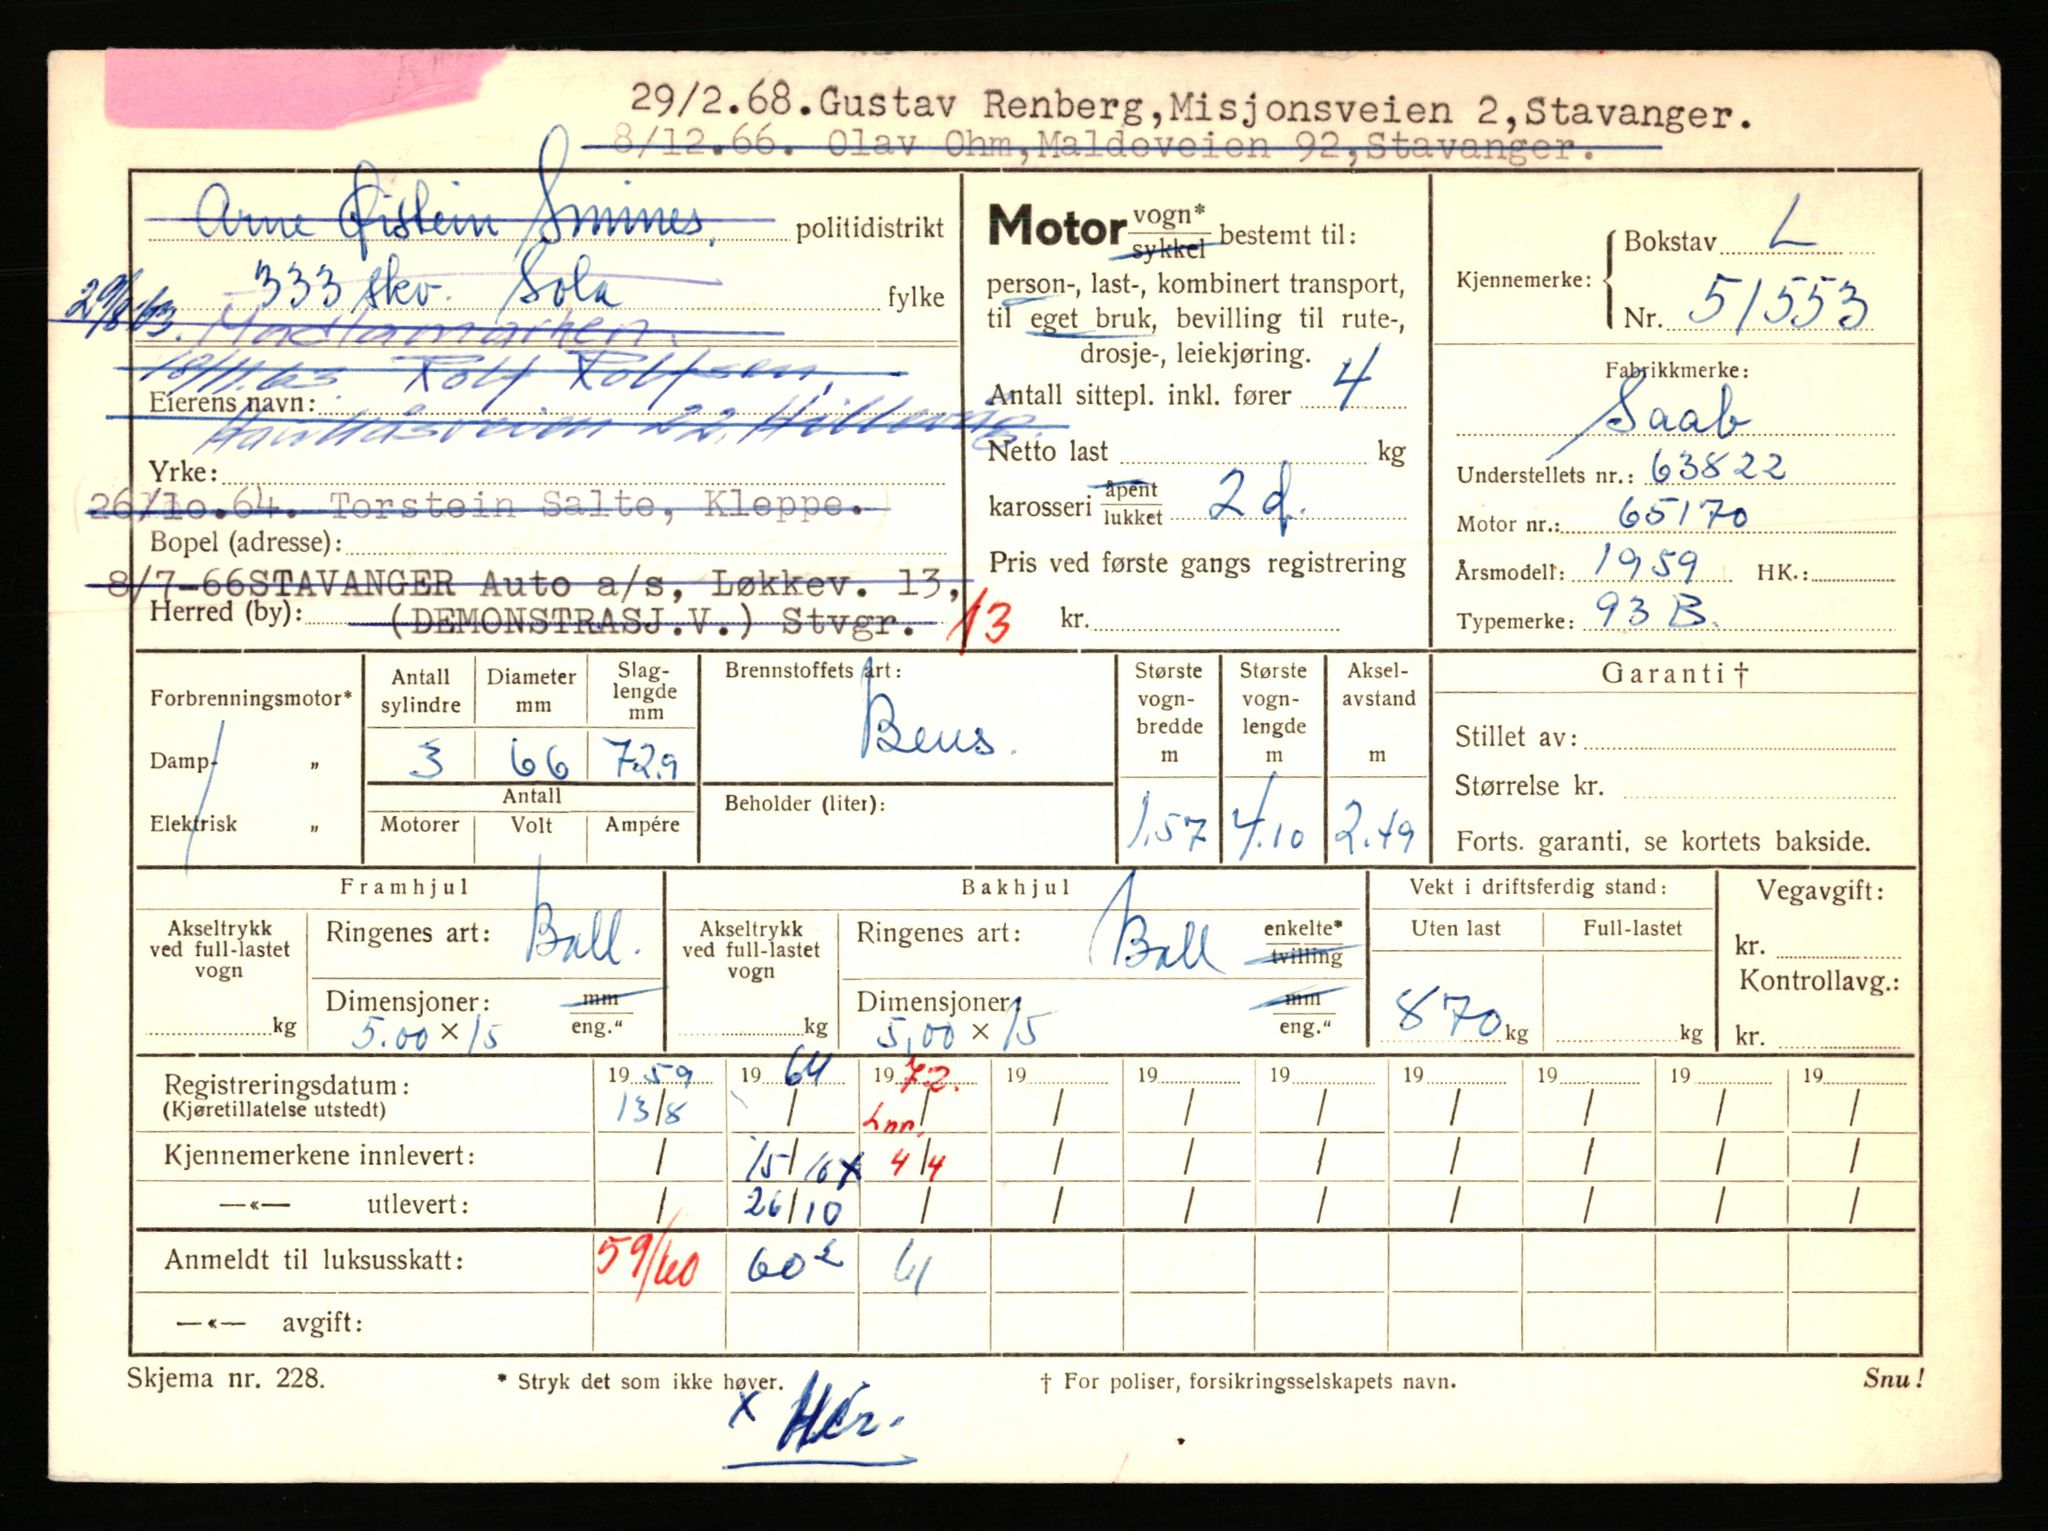 29/2.68.Gustav Renberg,Misjonsveien 2,Stavanger.
8/12.66. Olav Ohm,Maldeveien 92,Stavanger.
Arne Øistein politidistrikt
333 skv. Sola fylke
29/8/63. Madlamarken.
18/11.63. Rolf Rolfsen,
Eierens navn:
22. Hillevåg.
Yrke:
26/10.64. Torstein Salte, Kleppe.
Bopel (adresse):
8/7-66STAVANGER Auto a/s, Løkkev. 13,
Herred (by): (DEMONSTRASJ.V.) Stvgr. 13
Motor vogn* sykkel bestemt til:
person-, last-, kombinert transport,
til eget bruk, bevilling til rute-,
drosje-, leiekjøring.
Antall sittepl. inkl. fører 4
Netto last kg
karosseri åpent lukket 2 d.
Pris ved første gangs registrering
kr.
Kjennemerke: Bokstav L
Nr. 51553
Fabrikkmerke:
Saab
Understellets nr.: 63822
Motor nr.: 65170
Årsmodell: 1959 HK.:
Typemerke: 93 B.
Forbrenningsmotor*
Damp- „
Elektrisk „
Antall sylindre
3
Diameter mm
66
Slag-
lengde
mm
72.9
Antall
Motorer Volt Ampére
Brennstoffets art:
Bens.
Beholder (liter):
Største
vogn-
bredde
m
1.57
Største
vogn-
lengde
m
4.10
Aksel-
avstand
m
2.49
Garanti †
Stillet av:
Størrelse kr.
Forts. garanti, se kortets bakside.
Framhjul
Akseltrykk
ved full-lastet
vogn
kg
Ringenes art: Ball.
Dimensjoner: mm
5.00 × 15 eng."
Bakhjul
Akseltrykk
ved full-lastet
vogn
kg
Ringenes art: Ball enkelte* tvilling
Dimensjoner mm
5,00 × 15 eng."
Vekt i driftsferdig stand:
Uten last Full-lastet
870 kg kg
Vegavgift:
kr.
Kontrollavg.:
kr.
Registreringsdatum: 19 59 19 64 19 72. 19 19 19 19 19 19 19
(Kjøretillatelse utstedt) 13/8 / / / / / / / / /
Kjennemerkene innlevert: / 15/10 x 4/4 / / / / / / /
—«— utlevert: / 26/10 / / / / / / / /
Anmeldt til luksusskatt: 59/60 60 61
—«— avgift:
Skjema nr. 228. * Stryk det som ikke høver. † For poliser, forsikringsselskapets navn. Snu!
x